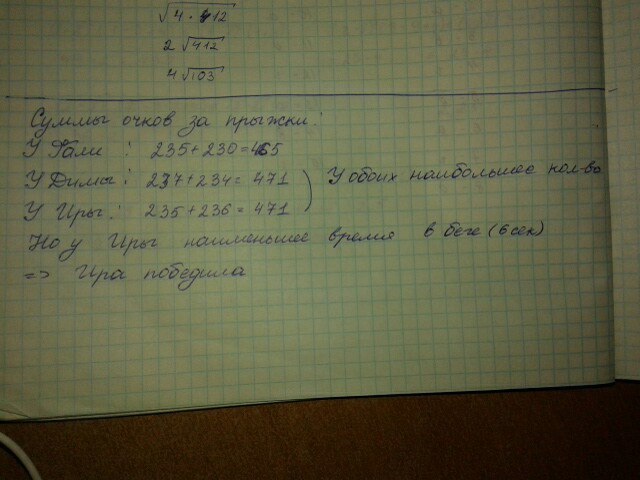 √4·412
2√412
4√103
Суммы очков за прыжки:
У Гали : 235+230=465
У Димы: 237+234= 471
У Иры: 235+236=471
) У обоих наибольшее кол-во
Но у Иры наименьшее время в беге (6 сек)
=> Ира победила